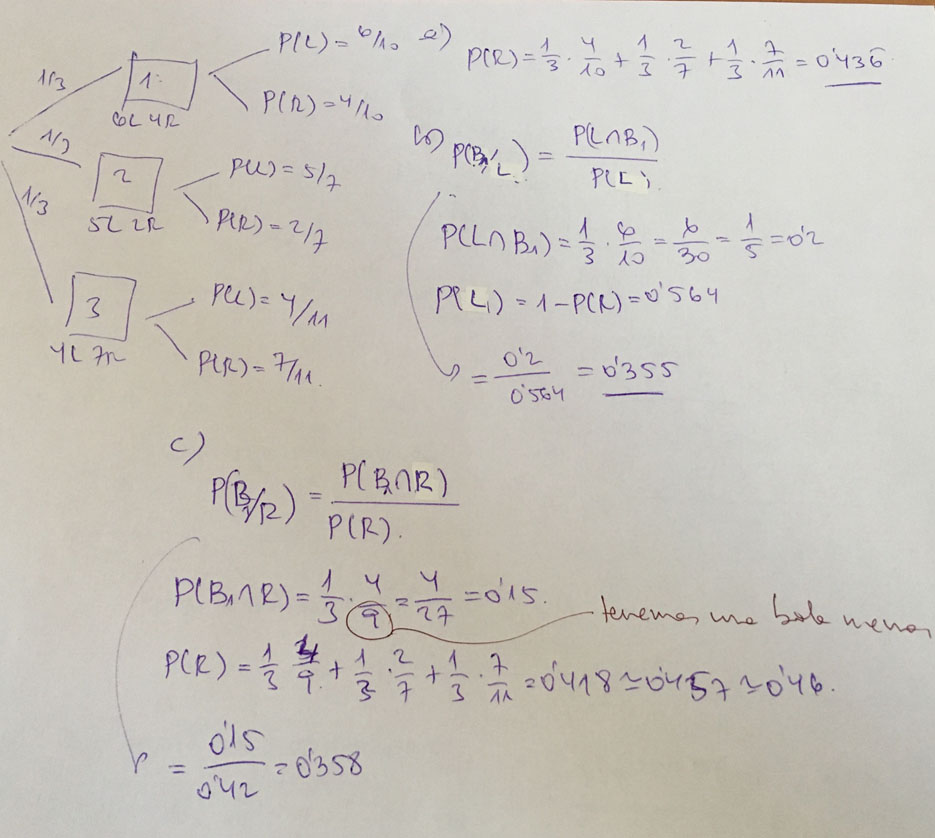 1/3
1
6L 4R
P(L) = 6/10
P(R) = 4/10
1/3
2
5L 2R
P(L) = 5/7
P(R) = 2/7
1/3
3
4L 7R
P(L) = 4/11
P(R) = 7/11.
a) P(R) = 1/3 · 4/10 + 1/3 · 2/7 + 1/3 · 7/11 = 0'436
b) P(B1/L) = P(L∩B1)/P(L)
P(L∩B1) = 1/3 · 6/10 = 6/30 = 1/5 = 0'2
P(L) = 1 - P(R) = 0'564
= 0'2/0'564 = 0'355
c)
P(B1/R) = P(B1∩R)/P(R).
P(B1∩R) = 1/3 · 4/9 = 4/27 = 0'15.
tenemos una bola menos
P(R) = 1/3 4/9 + 1/3 · 2/7 + 1/3 · 7/11 = 0'418 ≃ 0'457 ≃ 0'46.
= 0'15/0'42 = 0'358